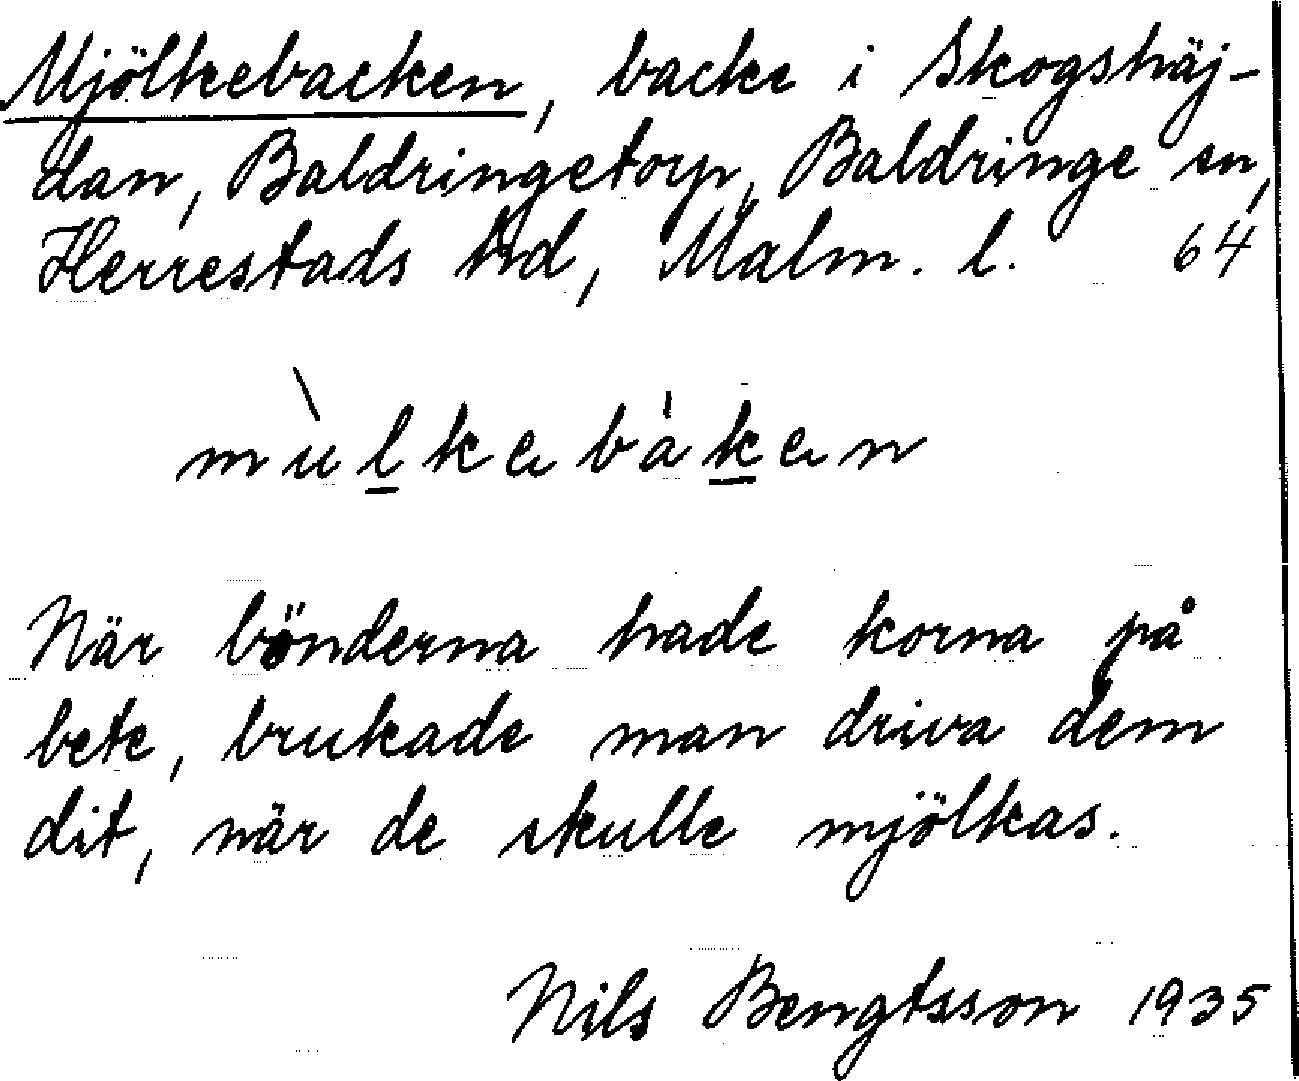 Mjölkebacken, backe i Skogshäj-
dan, Baldringetorp, Baldringe sn,
Herrestads hd, Malm. l. 64
mùlkebákен
När bönderna hade korna på
bete, brukade man driva dem
dit, när de skulle mjölkas.
Nils Bengtsson 1935